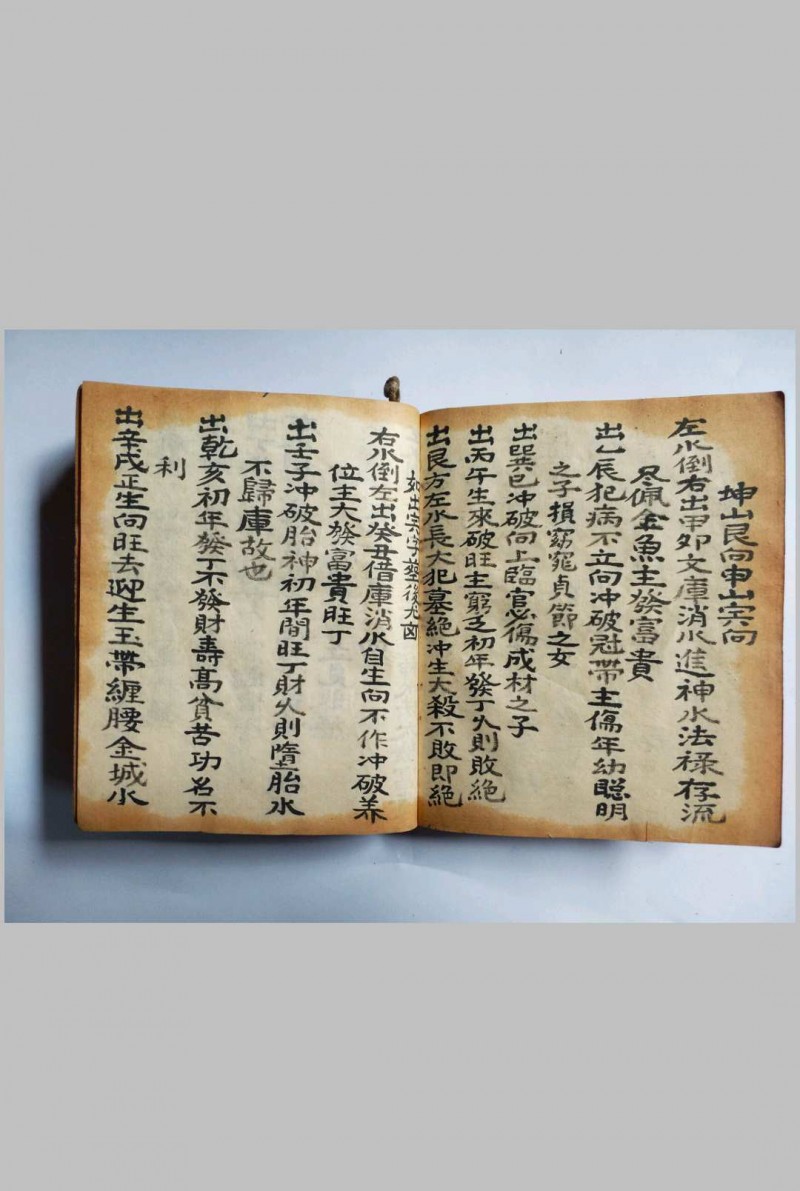 坤山艮向申山寅向
左水倒右出甲卯文庫消水進神水法祿存流
尽佩金魚主發富貴
出乙辰犯病不立向冲破冠帶主傷年幼聰明
之子損窈窕貞節之女
出巽巳冲破向上臨官必傷成材之子
出丙午生來破旺主窮乏初年發丁久則敗絶
出艮方左水長大犯墓絶冲生大殺不敗即絶
如出寅字塟後尤凶
右水倒左出癸丑借庫消水自生向不作冲破养
位主大發富貴旺丁
出壬子冲破胎神初年間旺丁財久則墮胎水
不歸庫故也
出乾亥初年發丁不發財壽髙貧苦功名不
利
出辛戌正生向旺去迎生玉帶纏腰金城水